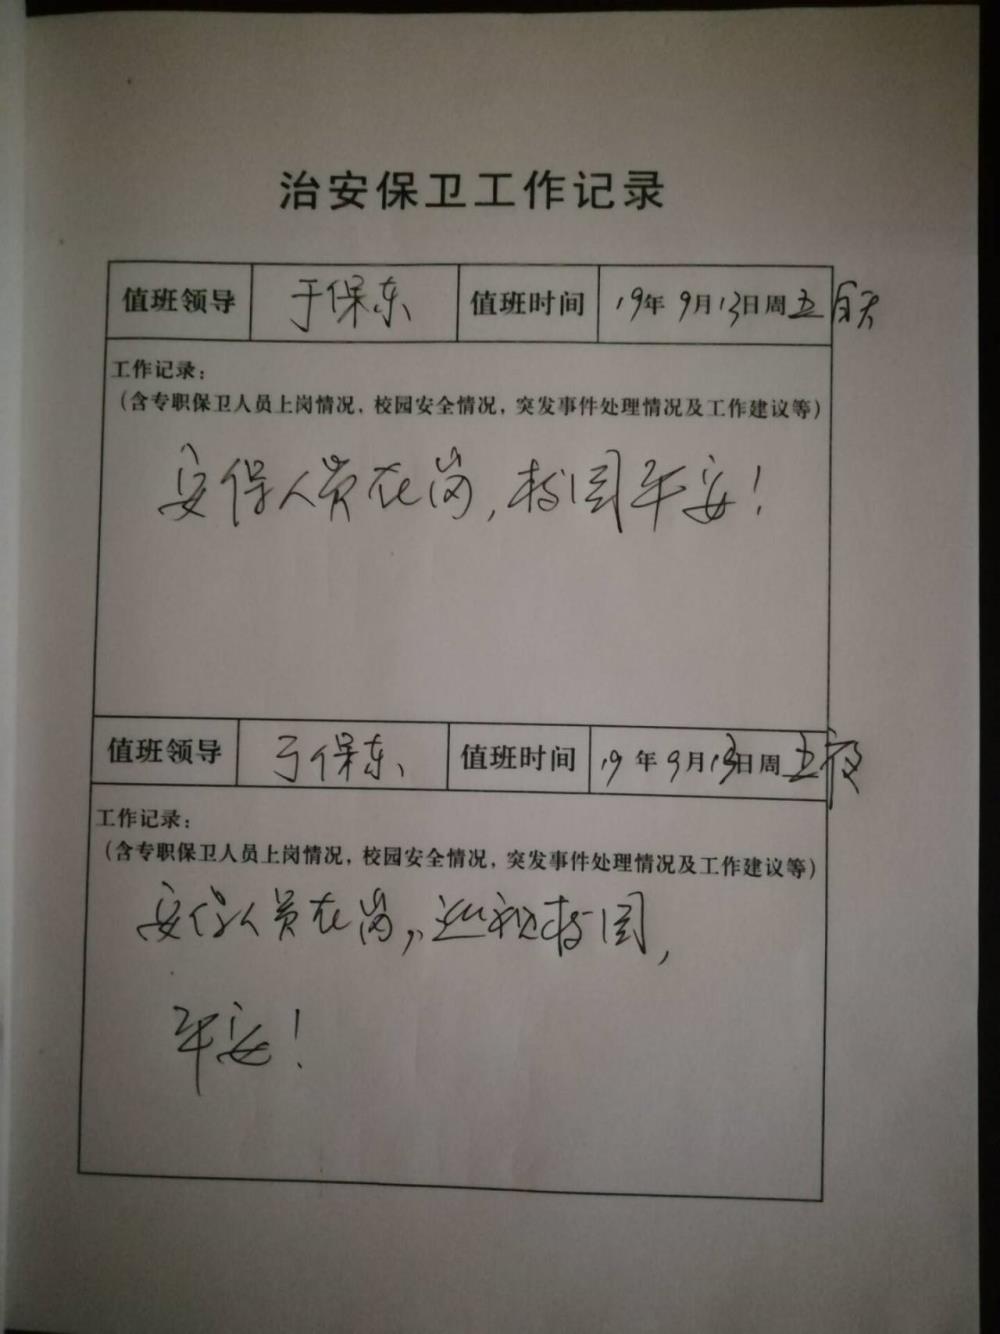 治安保卫工作记录
值班领导 于保东 值班时间 19年9月13日周五白天
工作记录：
（含专职保卫人员上岗情况，校园安全情况，突发事件处理情况及工作建议等）
安保人员在岗，校园平安！
值班领导 于保东 值班时间 19年9月13日周五夜
工作记录：
（含专职保卫人员上岗情况，校园安全情况，突发事件处理情况及工作建议等）
安保人员在岗，巡视校园，
平安！